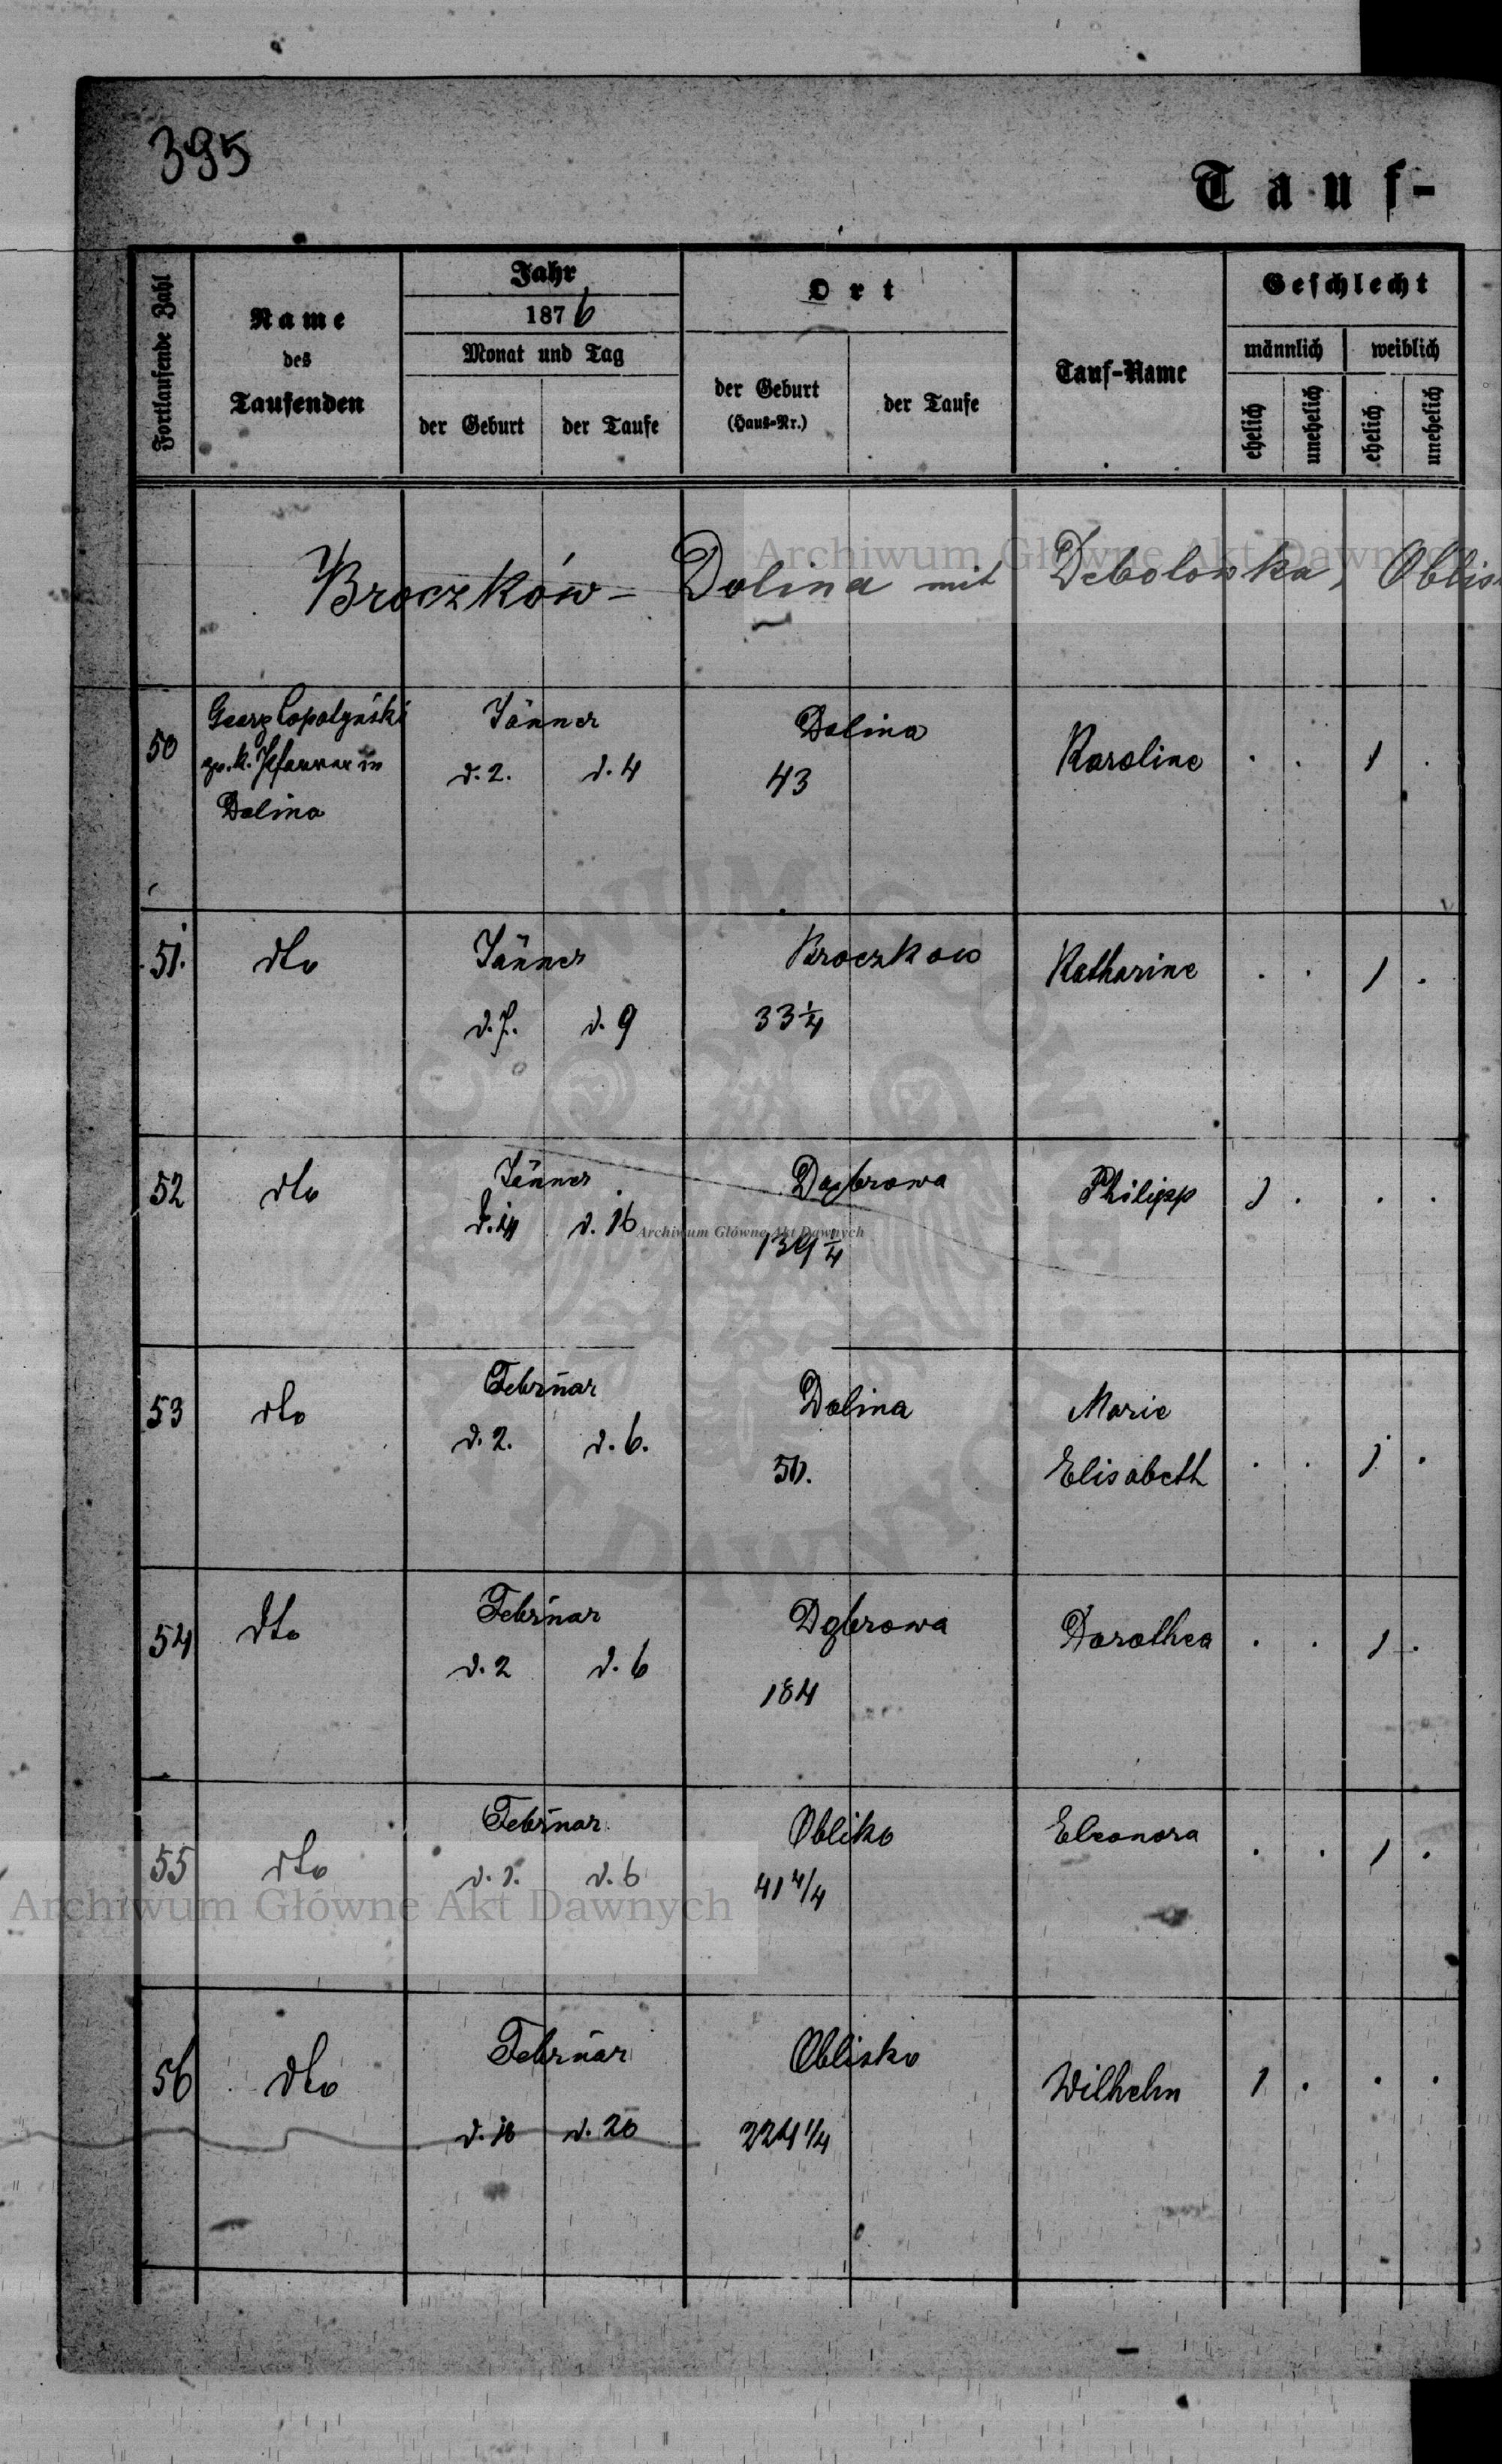 395
Tauf-
Fortlaufende Zahl
Name
des
Taufenden
Jahr
1876
Monat und Tag
der Geburt
der Taufe
Ort
der Geburt
(Haus-Nr.)
der Taufe
Tauf-Name
Geschlecht
männlich
weiblich
ehelich
unehelich
ehelich
unehelich
Broczków - Dolina mit Debolowka, Oblis
50 Georg Jänner Dolina Karoline . . 1 .
gr. k. Pfarrer in d. 2. d. 4 43
Dolina
51. dto Jänner Broczkow Katharine . . 1 .
d. 7. d. 9 33 1/4
52 dto Jänner Dąbrowa Philipp 1 . . .
d. 16 139 1/4
53 dto Februar Dolina Marie . . 1 .
d. 2. d. 6. Elisabeth
54 dto Februar Dąbrowa Dorothea . . 1 .
d. 2 d. 6 184
55 dto Februar Oblisko Eleonora . . 1 .
d. 1. d. 6 41 4/4
56 dto Februar Oblisko Wilhelm 1 . . .
d. 20 224 1/4
Archiwum Główne Akt Dawnych
Archiwum Główne Akt Dawnych
Archiwum Główne Akt Dawnych
ARCHIWUM GŁÓWNE AKT DAWNYCH